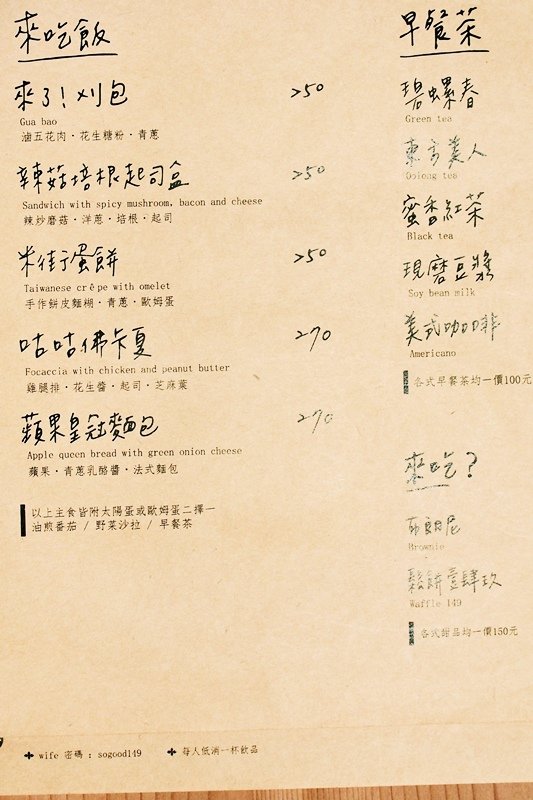 來吃飯
來了！刈包 250
Gua bao
滷五花肉・花生糖粉・青蔥
辣菇培根起司盒 250
Sandwich with spicy mushroom, bacon and cheese
辣炒磨菇・洋蔥・培根・起司
米街蛋餅 250
Taiwanese crêpe with omelet
手作餅皮麵糊・青蔥・歐姆蛋
咕咕佛卡夏 270
Focaccia with chicken and peanut butter
雞腿排・花生醬・起司・芝麻葉
蘋果皇冠麵包 270
Apple queen bread with green onion cheese
蘋果・青蔥乳酪醬・法式麵包
以上主食皆附太陽蛋或歐姆蛋二擇一
油煎番茄 / 野菜沙拉 / 早餐茶
早餐茶
碧螺春
Green tea
東方美人
Oolong tea
蜜香紅茶
Black tea
現磨豆漿
Soy bean milk
美式咖啡
Americano
各式早餐茶均一價100元
來吃？
布朗尼
Brownie
鬆餅壹肆玖
Waffle 149
各式甜品均一價150元
✚ wife 密碼 : sogood149 ✚ 每人低消一杯飲品